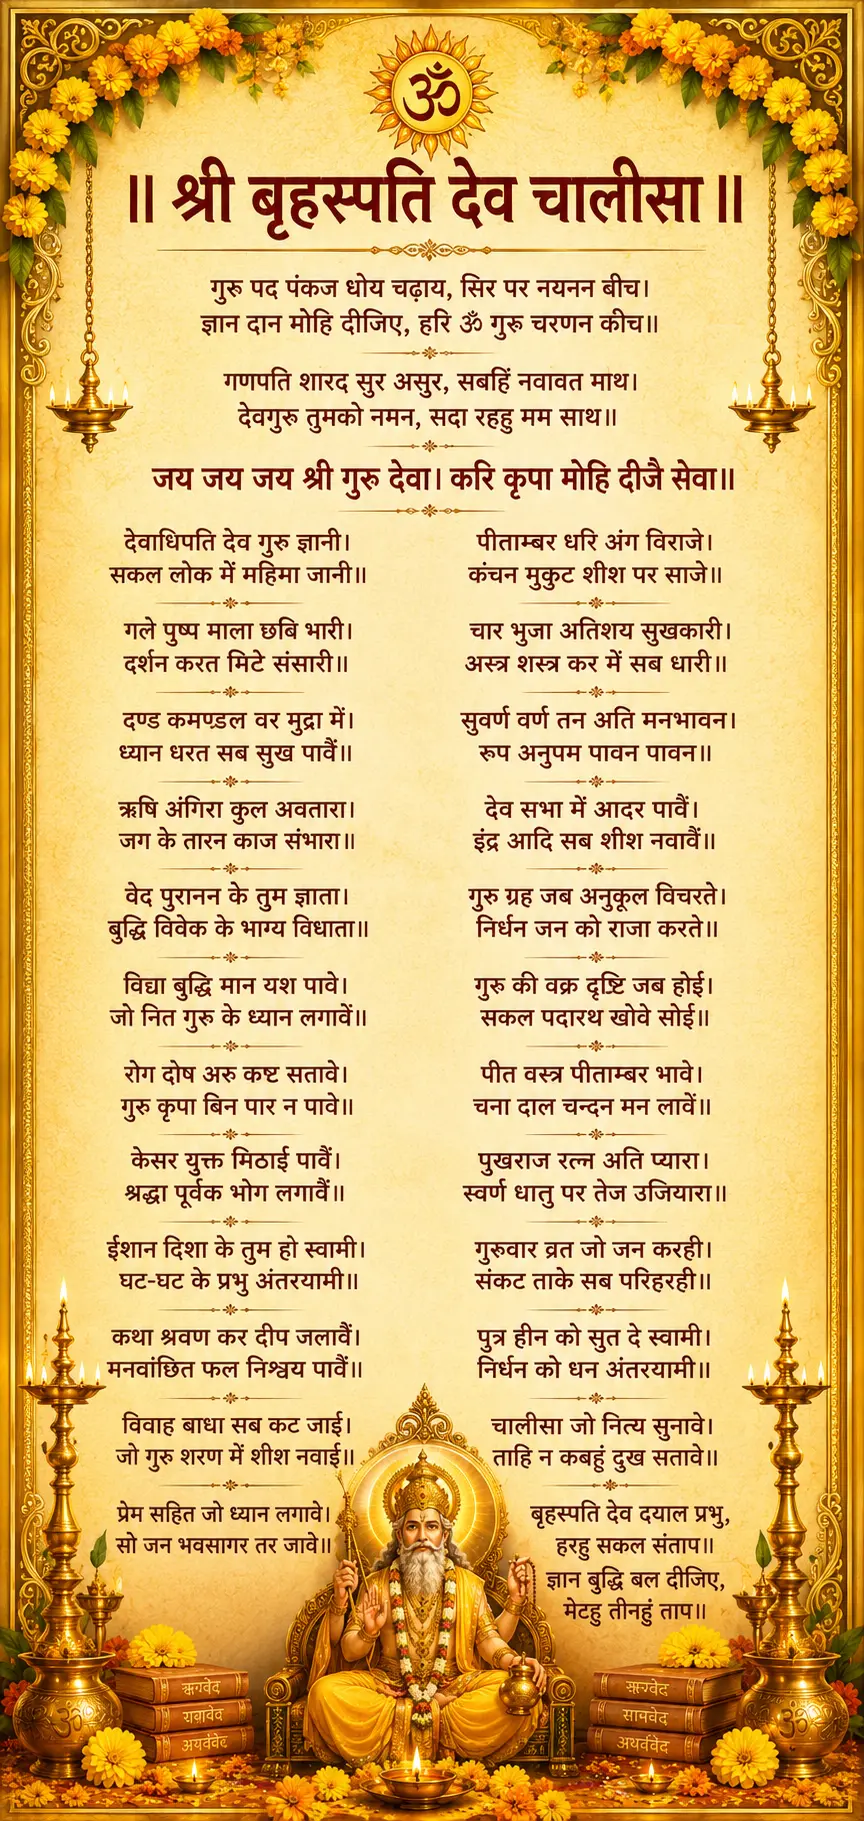 ॐ
॥ श्री बृहस्पति देव चालीसा ॥
गुरु पद पंकज धोय चढ़ाय, सिर पर नयनन बीच।
ज्ञान दान मोहि दीजिए, हरि ॐ गुरु चरणन कीच॥
गणपति शारद सुर असुर, सबहिं नवावत माथ।
देवगुरु तुमको नमन, सदा रहहु मम साथ॥
जय जय जय श्री गुरु देवा। करि कृपा मोहि दीजै सेवा॥
देवाधिपति देव गुरु ज्ञानी।
सकल लोक में महिमा जानी॥
पीताम्बर धरि अंग विराजे।
कंचन मुकुट शीश पर साजे॥
गले पुष्प माला छबि भारी।
दर्शन करत मिटे संसारी॥
चार भुजा अतिशय सुखकारी।
अस्त्र शस्त्र कर में सब धारी॥
दण्ड कमण्डल वर मुद्रा में।
ध्यान धरत सब सुख पावैं॥
सुवर्ण वर्ण तन अति मनभावन।
रूप अनुपम पावन पावन॥
ऋषि अंगिरा कुल अवतारा।
जग के तारन काज संभारा॥
देव सभा में आदर पावैं।
इंद्र आदि सब शीश नवावैं॥
वेद पुरानन के तुम ज्ञाता।
बुद्धि विवेक के भाग्य विधाता॥
गुरु ग्रह जब अनुकूल विचरते।
निर्धन जन को राजा करते॥
विद्या बुद्धि मान यश पावे।
जो नित गुरु के ध्यान लगावें॥
गुरु की वक्र दृष्टि जब होई।
सकल पदारथ खोवे सोई॥
रोग दोष अरु कष्ट सतावे।
गुरु कृपा बिन पार न पावे॥
पीत वस्त्र पीताम्बर भावे।
चना दाल चन्दन मन लावें॥
केसर युक्त मिठाई पावैं।
श्रद्धा पूर्वक भोग लगावैं॥
पुखराज रत्न अति प्यारा।
स्वर्ण धातु पर तेज उजियारा॥
ईशान दिशा के तुम हो स्वामी।
घट-घट के प्रभु अंतरयामी॥
गुरुवार व्रत जो जन करही।
संकट ताके सब परिहरही॥
कथा श्रवण कर दीप जलावैं।
मनवांछित फल निश्चय पावैं॥
पुत्र हीन को सुत दे स्वामी।
निर्धन को धन अंतरयामी॥
विवाह बाधा सब कट जाई।
जो गुरु शरण में शीश नवाई॥
चालीसा जो नित्य सुनावे।
ताहि न कबहुं दुख सतावे॥
प्रेम सहित जो ध्यान लगावे।
सो जन भवसागर तर जावे॥
बृहस्पति देव दयाल प्रभु,
हरहु सकल संताप॥
ज्ञान बुद्धि बल दीजिए,
मेटहु तीनहुं ताप॥
ॐ
ऋग्वेद
अथर्ववेद
सामवेद
अथर्ववेद
ॐ